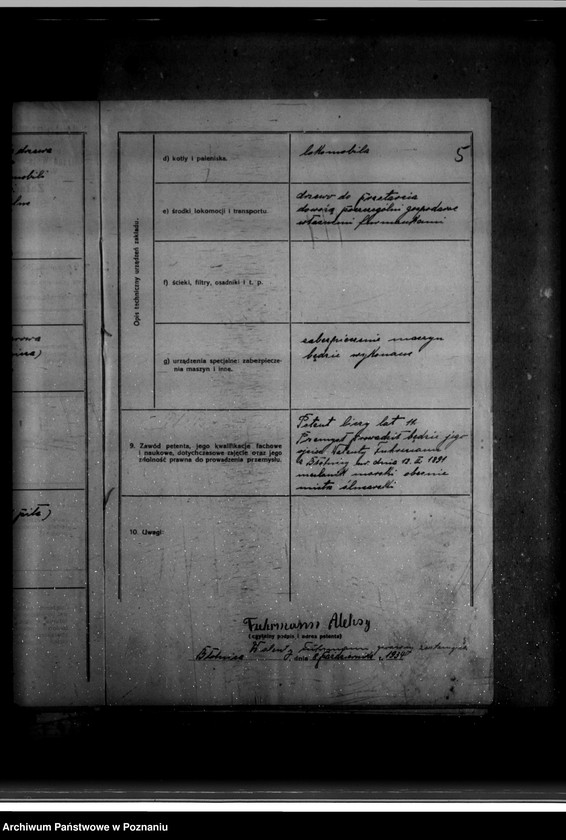 drzewa
5
Opis techniczny urządzeń zakładu.
d) kotły i paleniska.
lokomobila
e) środki lokomocji i transportu
drzewo do przetarcia
dowożą poszczególni gospodarze
własnymi furmankami
f) ścieki, filtry, osadniki i t. p.
g) urządzenia specjalne: zabezpiecze-
nia maszyn i inne.
zabezpieczenie maszyn
będzie wykonane
9. Zawód petenta, jego kwalifikacje fachowe
i naukowe, dotychczasowe zajęcie oraz jego
zdolność prawna do prowadzenia przemysłu.
Petent liczy lat 11
Przemysł prowadzić będzie jego
ojciec Walenty Fuhrmann
w dnia 13. II 1891
obecnie
mistrz ślusarski
piła)
10. Uwagi:
Fuhrmann Aleksy
(czytelny podpis i adres petenta)
Fuhrmann
dnia października 1934
Archiwum Państwowe w Poznaniu